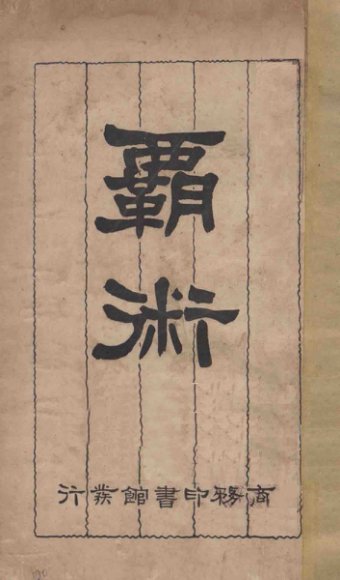 覇術
商務印書館發行